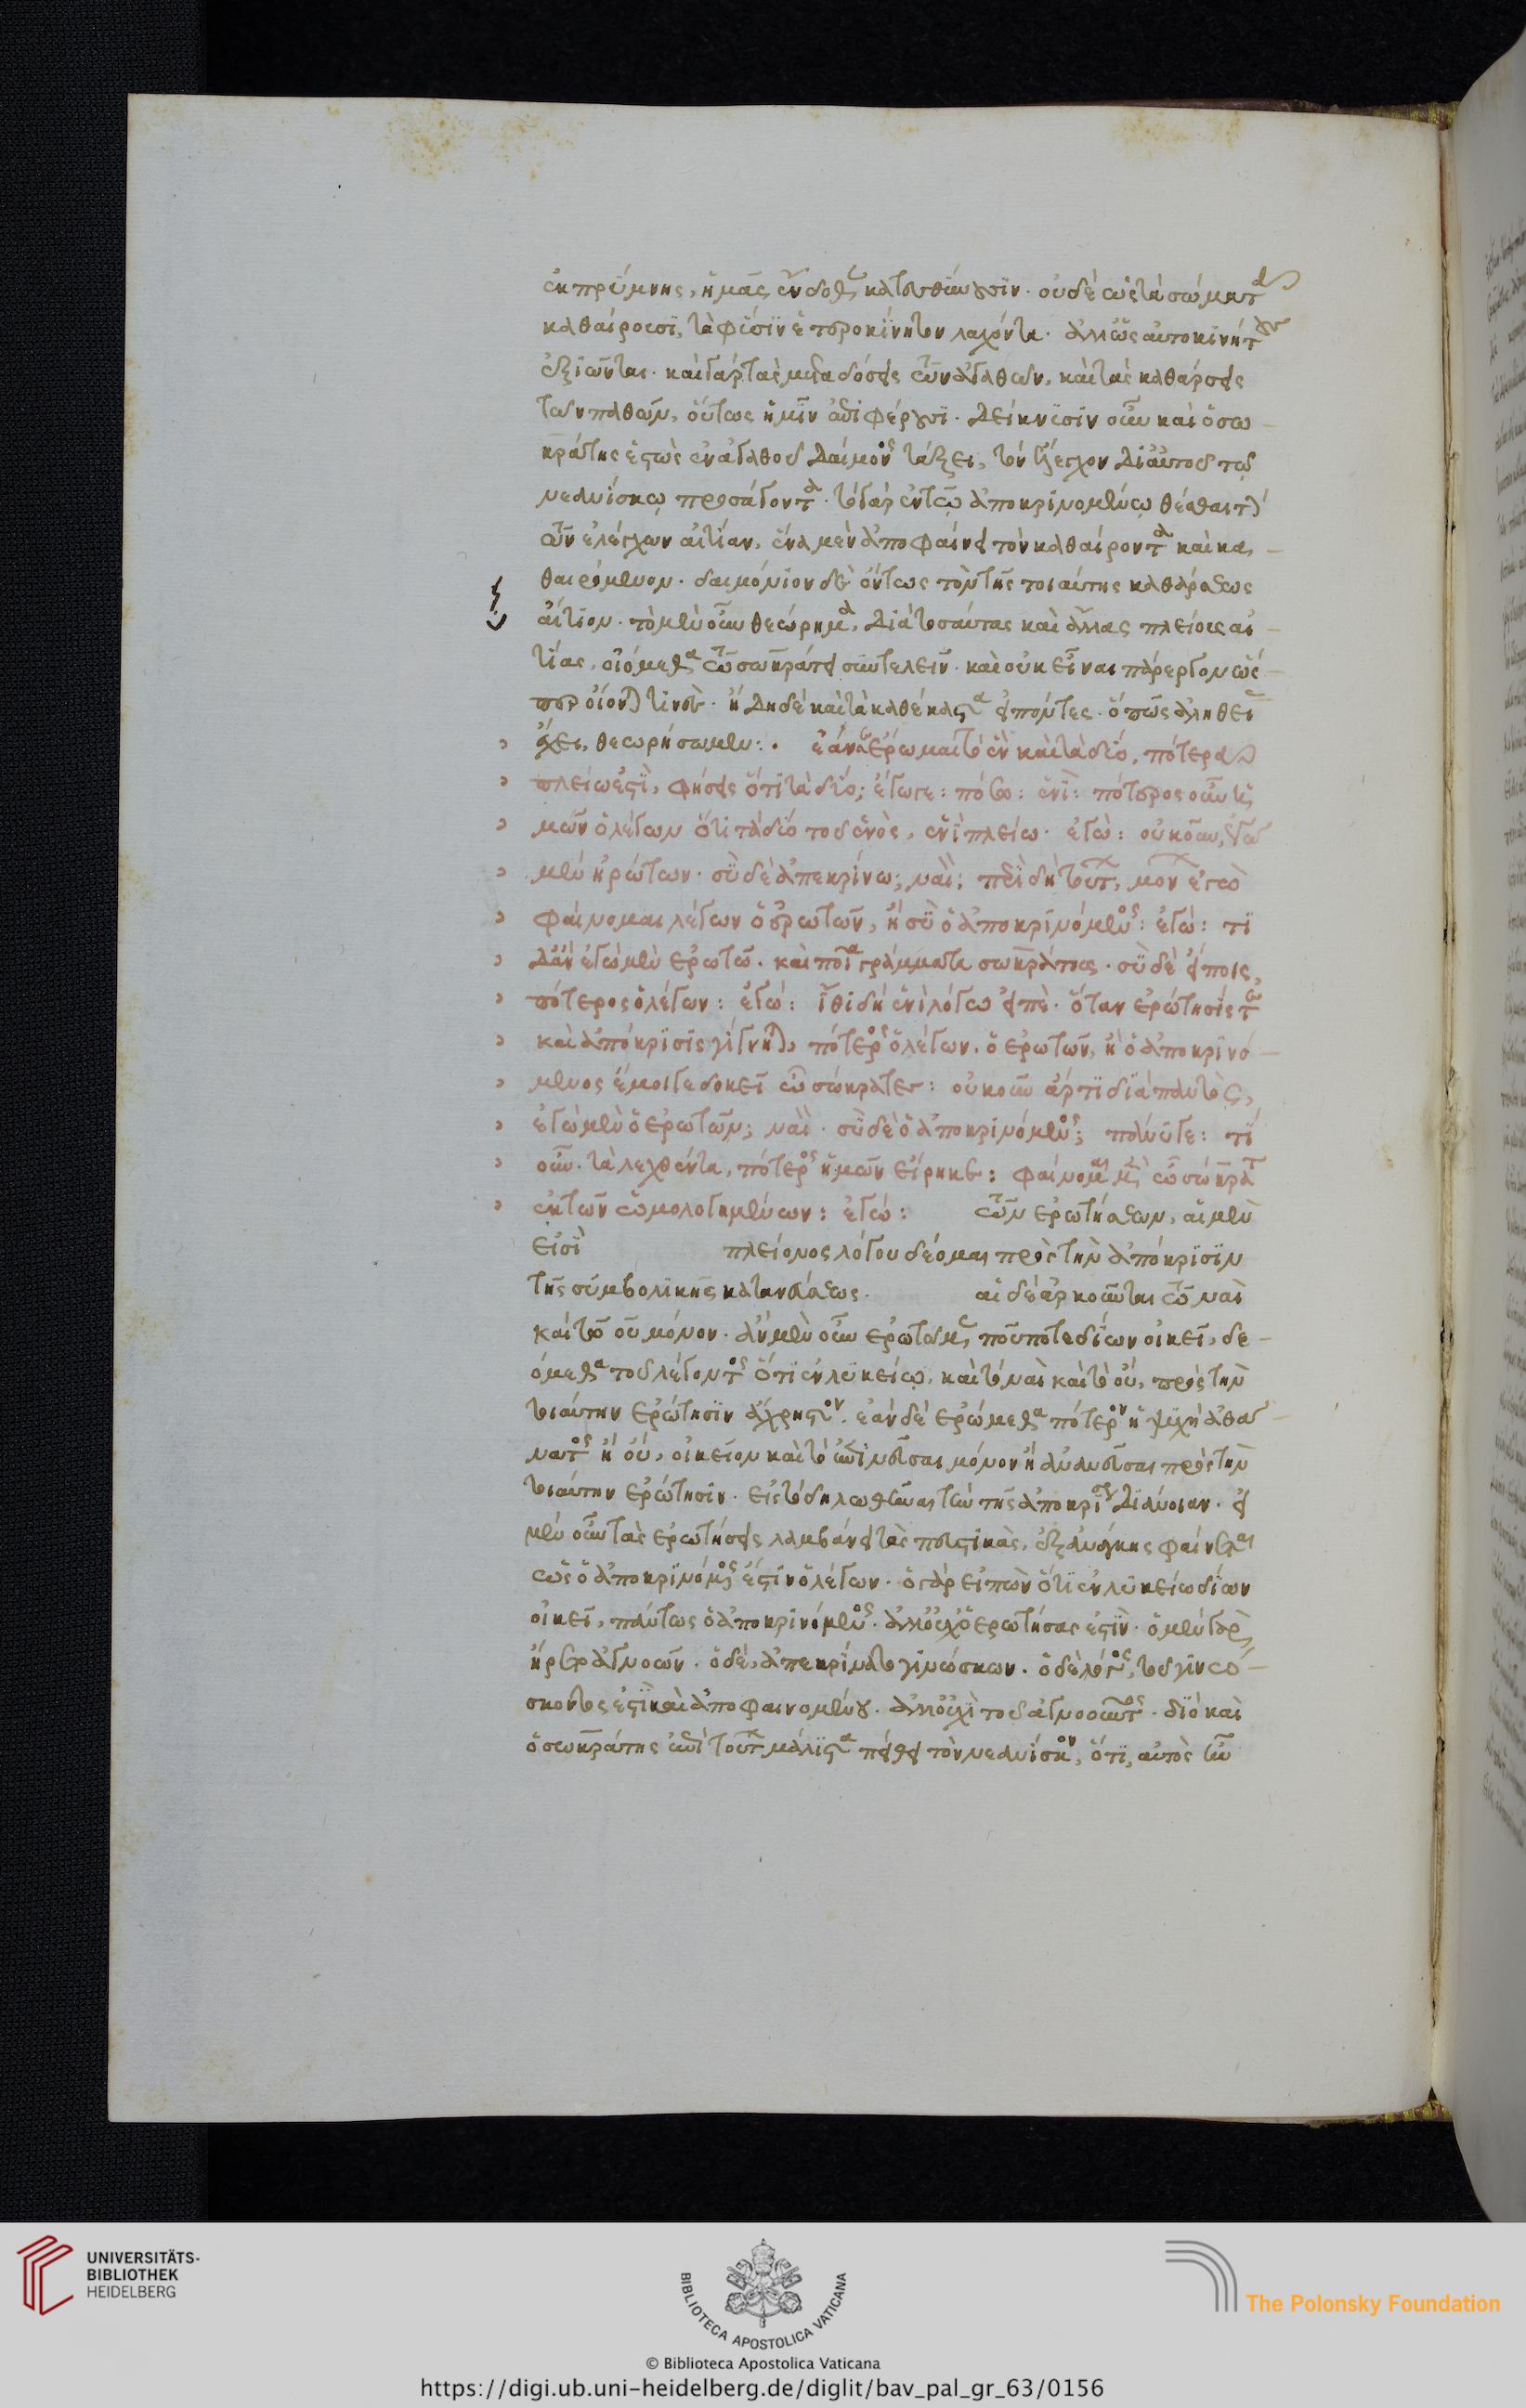 ἐκ πρύμνης, ἡμᾶς ἔνδοθεν κατευθύνουσιν. οὐδὲ ὡς τὰ σώματα
καθαίρουσι, τὰ φύσιν ἑτεροκίνητον λαχόντα. ἀλλ' ὡς αὐτοκινήτων
ἐξιῶντας. καὶ γὰρ τὰς μεταδόσεις τῶν ἀγαθῶν, καὶ τὰς καθάρσεις
τῶν παθῶν, οὕτως ἡμῖν ἐπιφέρουσι. δείκνυσιν οὖν καὶ ὁ σω
κράτης ἑστὼς ἐν ἀγαθοῦ δαίμονος τάξει, τὸν ἔλεγχον δι' αὐτοῦ τῷ
νεανίσκῳ προσάγοντα. τὸ γὰρ ἐν τῷ ἀποκρινομένῳ θέσθαι τὴν
τῶν ἐλέγχων αἰτίαν, ἕνα μὲν ἀποφαίνει τὸν καθαίροντα καὶ κα
θαιρόμενον. δαιμόνιον δὲ ὄντως τὸν τῆς τοιαύτης καθάρσεως
αἴτιον. τὸ μὲν οὖν θεώρημα, διὰ τοσαύτας καὶ ἄλλας πλείους αἰ
τίας, οἰόμεθα τῷ σωκράτει συντελεῖν. καὶ οὐκ εἶναι πάρεργον ὥς
περ οἴονταί τινες. ἤδη δὲ καὶ τὰ καθέκαστα εἰπόντες. ὅπως ἀληθείας
ἔχει, θεωρήσωμεν:. ἐάν σε ἔρωμαι τὸ ἓν καὶ τὰ δύο, πότερα
πλείω ἐστὶ, φήσεις ὅτι τὰ δύο; ἔγωγε: πόσῳ: ἑνί: πότερος οὖν ἡ
μῶν ὁ λέγων ὅτι τὰ δύο τοῦ ἑνὸς, ἑνὶ πλείω. ἐγώ: οὐκοῦν, ἐγὼ
μὲν ἠρώτων. σὺ δὲ ἀπεκρίνω; ναί: περὶ δὴ τούτων, μῶν ἐγὼ
φαίνομαι λέγων ὁ ἐρωτῶν, ἢ σὺ ὁ ἀποκρινόμενος: ἐγώ: τί
δ' ἂν ἐγὼ μὲν ἐρωτῶ. καὶ ποῖα γράμματα σωκράτους. σὺ δὲ εἴποις,
πότερος ὁ λέγων: ἐγώ: ἴθι δὴ ἑνὶ λόγῳ εἰπὲ. ὅταν ἐρώτησίς τε
καὶ ἀπόκρισις γίγνηται, πότερος ὁ λέγων. ὁ ἐρωτῶν, ἢ ὁ ἀποκρινό
μενος ἔμοιγε δοκεῖ ὦ σώκρατες: οὐκοῦν ἄρτι διὰ παντὸς,
ἐγὼ μὲν ὁ ἐρωτῶν; ναί. σὺ δὲ ὁ ἀποκρινόμενος; πάνυ γε: τί
οὖν. τὰ λεχθέντα, πότερος ἡμῶν εἴρηκε: φαίνομαι μὲν ὦ σώκρατες
ἐκ τῶν ὡμολογημένων: ἐγώ: τῶν ἐρωτήσεων, αἱ μὲν
εἰσὶ πλείονος λόγου δεόμεναι πρὸς τὴν ἀπόκρισιν
τῆς συμβολικῆς κατανεύσεως. αἱ δὲ ἀρκοῦνται τῷ ναὶ
καὶ τῷ οὒ μόνον. ἂν μὲν οὖν ἐρωτῶμεν, ποῦ ποτε δίων οἰκεῖ, δε
όμεθα τοῦ λέγοντος ὅτι ἐν λυκείῳ, καὶ τὸ ναὶ καὶ τὸ οὔ, πρὸς τὴν
τοιαύτην ἐρώτησιν ἄχρηστον. ἐὰν δὲ ἐρώμεθα πότερον ἡ ψυχὴ ἀθά
νατος ἢ οὔ, οἰκεῖον καὶ τὸ ἐπινεῦσαι μόνον ἢ ἀνανεῦσαι πρὸς τὴν
τοιαύτην ἐρώτησιν. εἰς τὸ δηλωθῆναι τὴν τῆς ἀποκρίσεως διάνοιαν. εἰ
μὲν οὖν τὰς ἐρωτήσεις λαμβάνει τὰς πυστικὰς, ἐξ ἀνάγκης φαίνεται
ὡς ὁ ἀποκρινόμενος ἐστὶν ὁ λέγων. ὁ γὰρ εἰπὼν ὅτι ἐν λυκείῳ δίων
οἰκεῖ, πάντως ὁ ἀποκρινόμενος. ἀλλ' οὐχ ὁ ἐρωτήσας ἐστὶν. ὁ μὲν γὰρ,
ἤρετο ἀγνοῶν. ὁ δὲ, ἀπεκρίνατο γινώσκων. ὁ δὲ λόγος, τοῦ γινώ
σκοντος ἐστὶ καὶ ἀποφαινομένου. ἀλλ' οὐχὶ τοῦ ἀγνοοῦντος. διὸ καὶ
ὁ σωκράτης ἐπὶ τούτων μάλιστα πείθει τὸν νεανίσκον, ὅτι, αὐτὸς ἦν
UNIVERSITÄTS-
BIBLIOTHEK
HEIDELBERG
BIBLIOTECA APOSTOLICA VATICANA
The Polonsky Foundation
© Biblioteca Apostolica Vaticana
https://digi.ub.uni-heidelberg.de/diglit/bav_pal_gr_63/0156